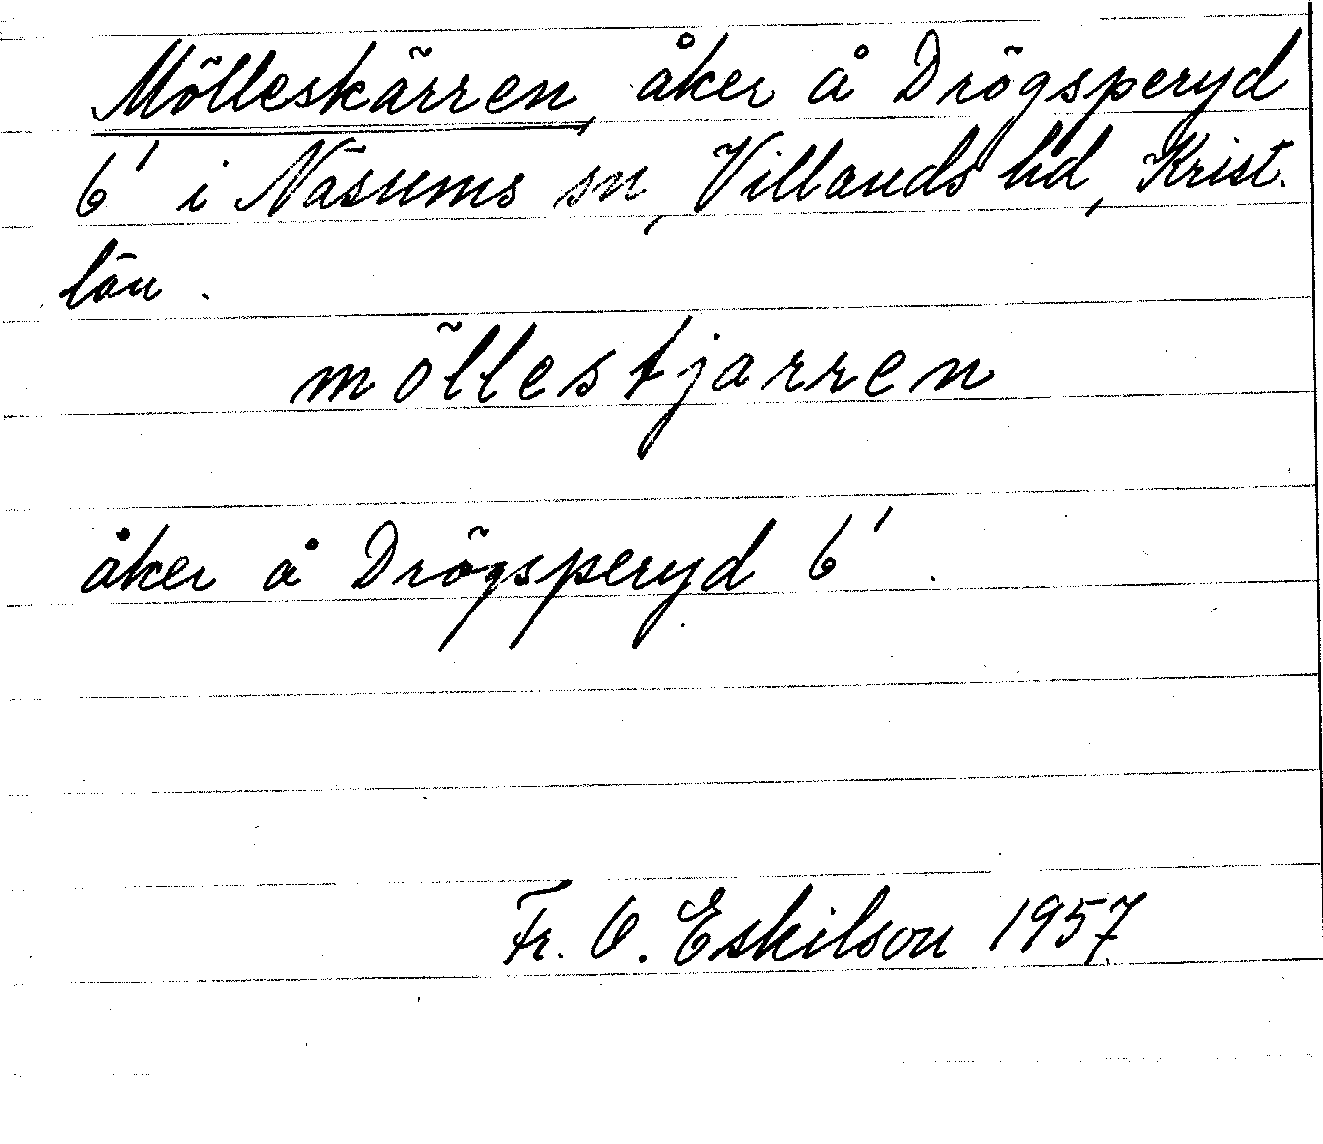 Mölleskärren, åker å Drögsperyd
6¹ i Näsums sn, Villands hd, Krist.
län.
möllestjarren
åker å Drögsperyd 6¹.
Fr. O. Eskilson 1957